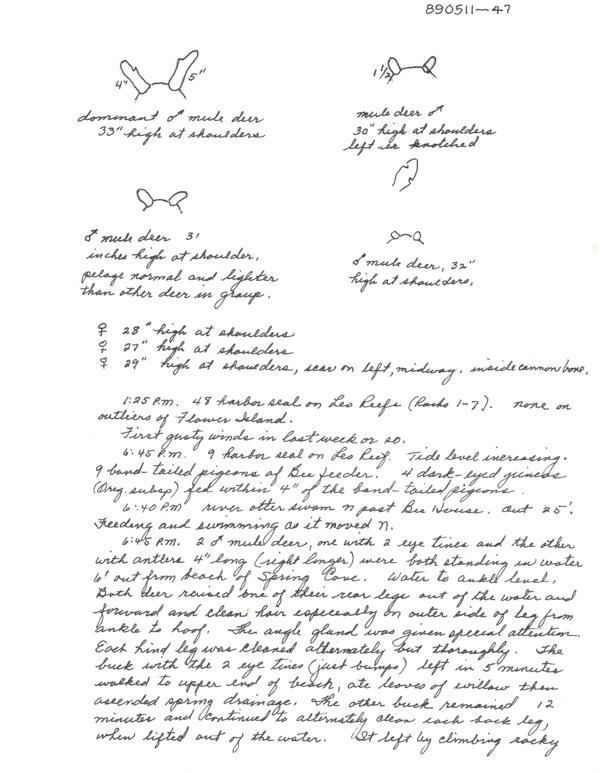 890511-47
4" 5"
dominant ♂ mule deer
33" high at shoulders
1 1/2
mule deer ♂
30" high at shoulders
left ear knotched
♂ mule deer 31
inches high at shoulder,
pelage normal and lighter
than other deer in group.
♂ mule deer, 32"
high at shoulders,
♀ 28" high at shoulders
♀ 27" high at shoulders
♀ 29" high at shoulders, scar on left, midway, inside cannon bone.
1:25 P.M. 48 harbor seal on Leo Reefs (Rocks 1-7). none on
outliers of Flower Island.
First gusty winds in last week or so.
6:45 P.M. 9 harbor seal on Leo Reef. Tide level increasing.
9 band-tailed pigeons at Bee feeder. 4 dark-eyed juncos
(Oreg. subsp) fed within 4" of the band-tailed pigeons.
6:40 P.M river otter swam N past Bee House. Out 25'.
Feeding and swimming as it moved N.
6:45 P.M. 2 ♂ mule deer, one with 2 eye tines and the other
with antlers 4" long (right longer) were both standing in water
6' out from beach of Spring Cove. Water to ankle level.
Both deer raised one of their rear legs out of the water and
forward and clean hair especeially on outer side of leg from
ankle to hoof. The angle gland was given special attention.
Each hind leg was cleaned alternately but thoroughly. The
buck with the 2 eye tines (just bumps) left in 5 minutes
walked to upper end of beach, ate leaves of willow then
ascended spring drainage. The other buck remained 12
minutes and continued to alternately clean each back leg,
when lifted out of the water. It left by climbing rocky